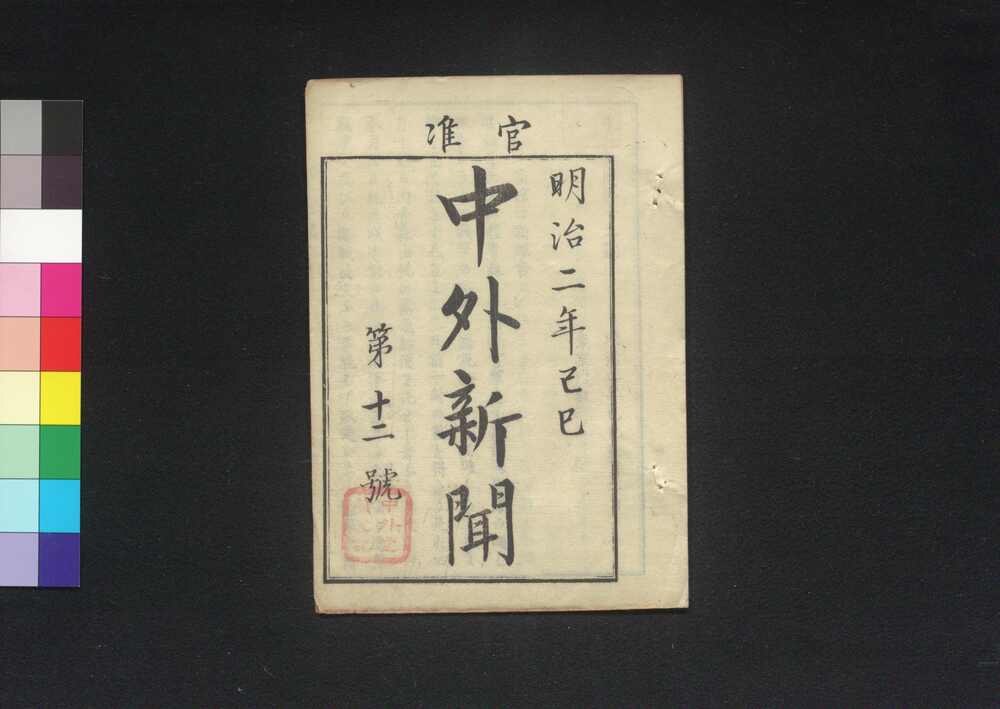 官准
明治二年己巳
中外新聞
第十二號